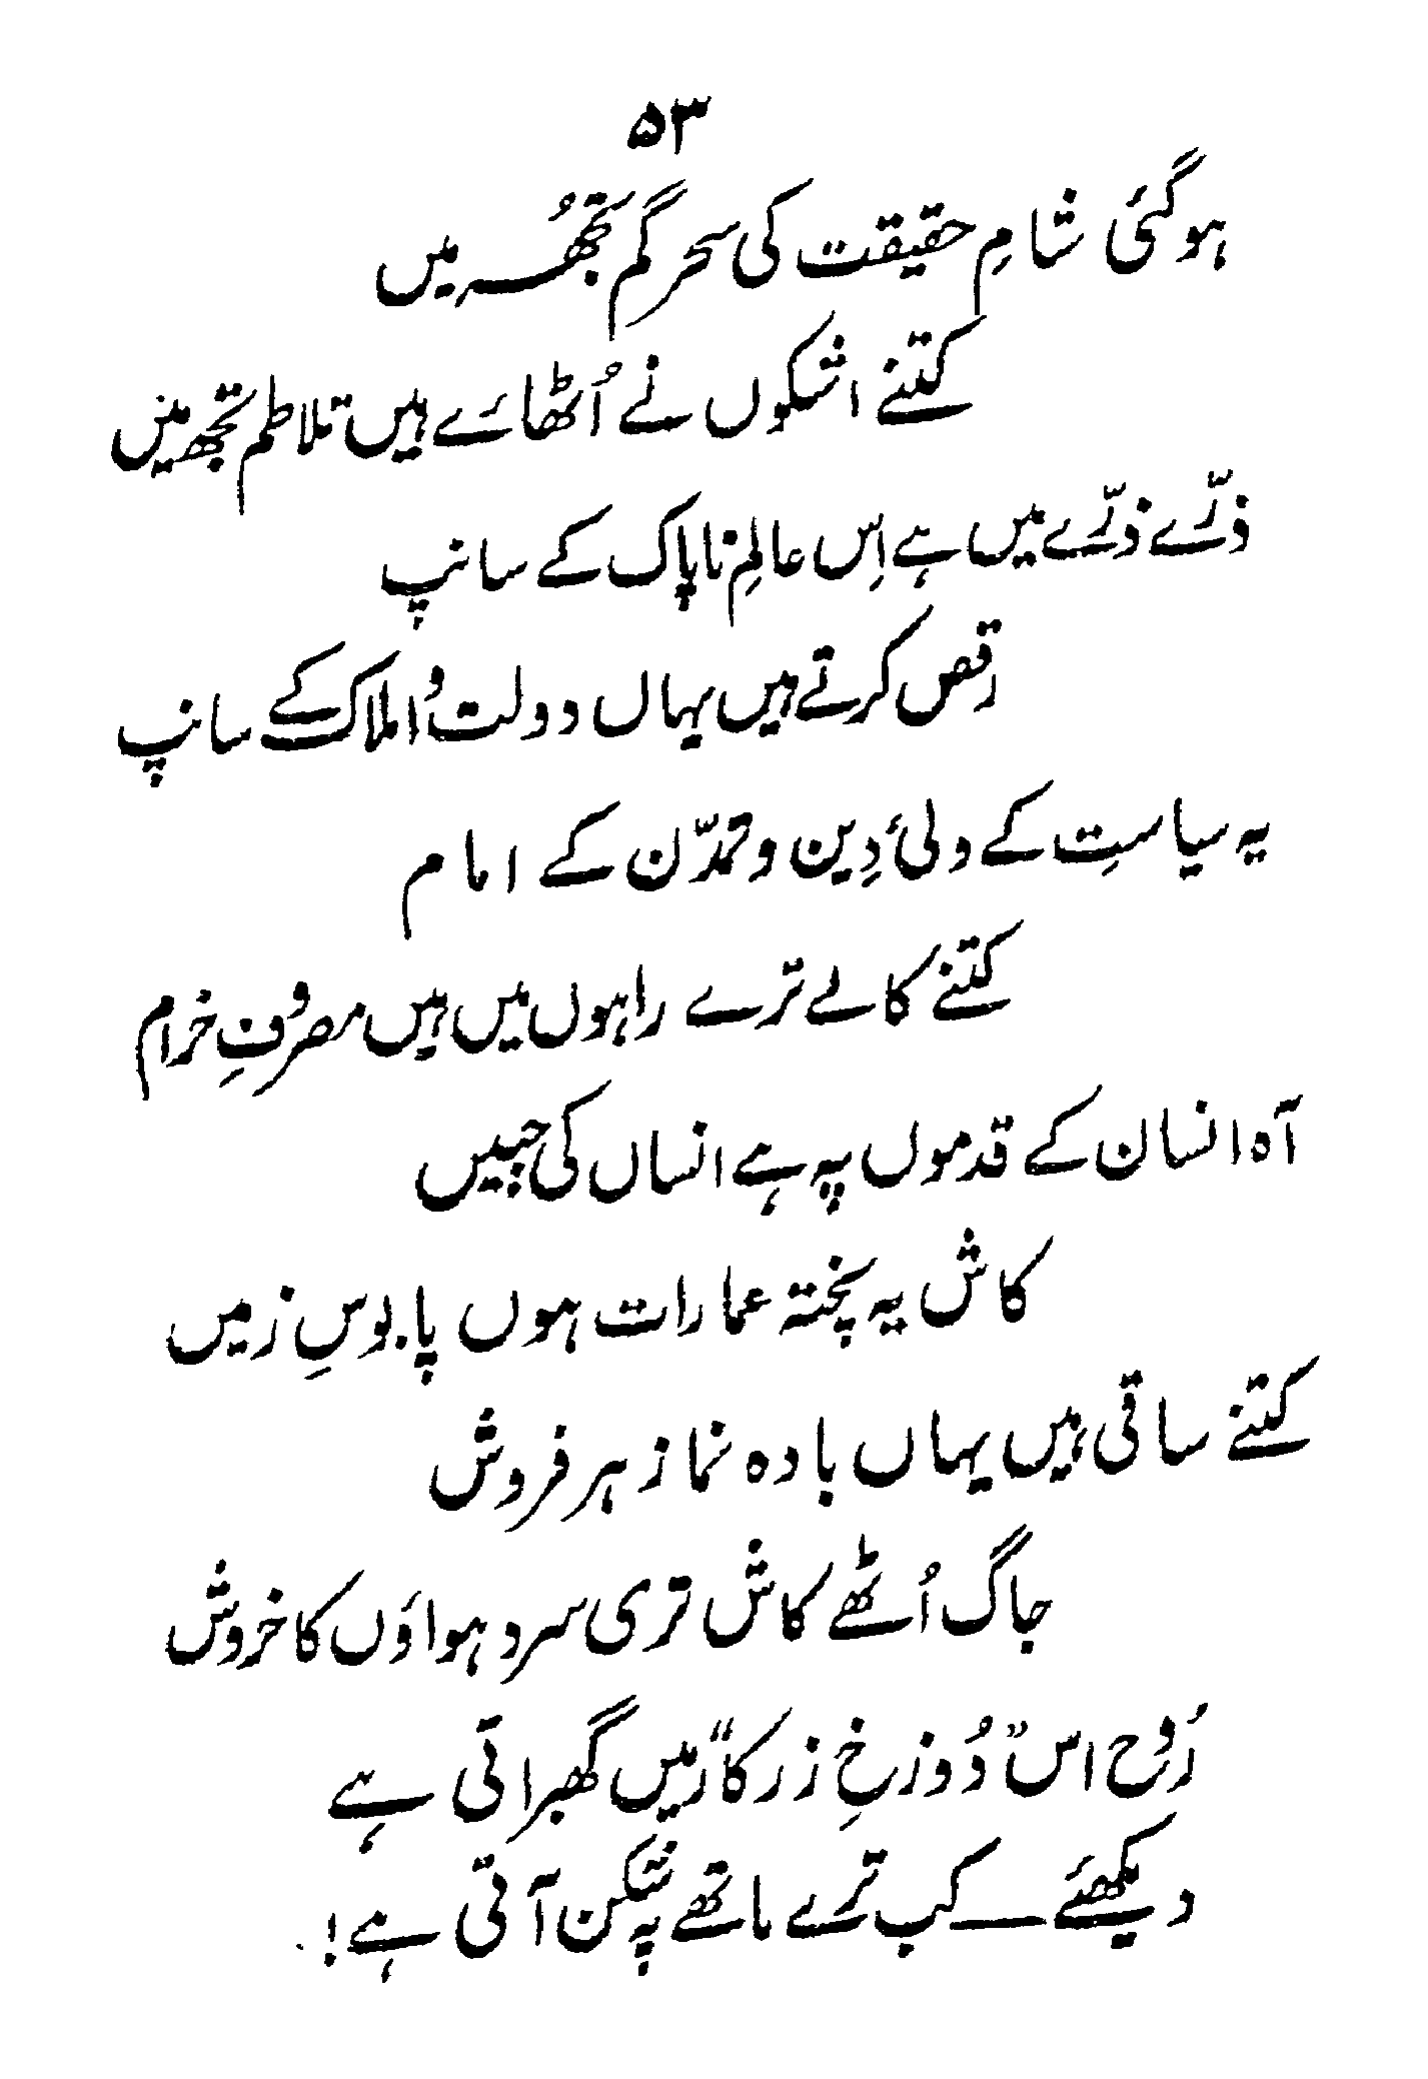 ۵۳
ہو گئی شامِ حقیقت کی سحر گم تجھُ میں
کتنے اشکوں نے اُٹھائے ہیں تلاطم تجھ میں
ذرّے ذرّے میں ہے اِس عالمِ ناپاک کے سانپ
رقص کرتے ہیں یہاں دولت و املاک کے سانپ
یہ سیاست کے ولیٔ دِین و تمدّن کے امام
کتنے کالے ترے راہوں میں ہیں مصروفِ خرام
آہ انسان کے قدموں پہ ہے انساں کی جبیں
کاش یہ پختہ عمارات ہوں پابوسِ زمیں
کتنے ساقی ہیں یہاں بادہ نما زہر فروش
جاگ اُٹھے کاش تری سرد ہواؤں کا خروش
رُوح اس "دُوزخِ زرکار" میں گھبراتی ہے
دیکھئے — کب ترے ماتھے پہ شکن آتی ہے!